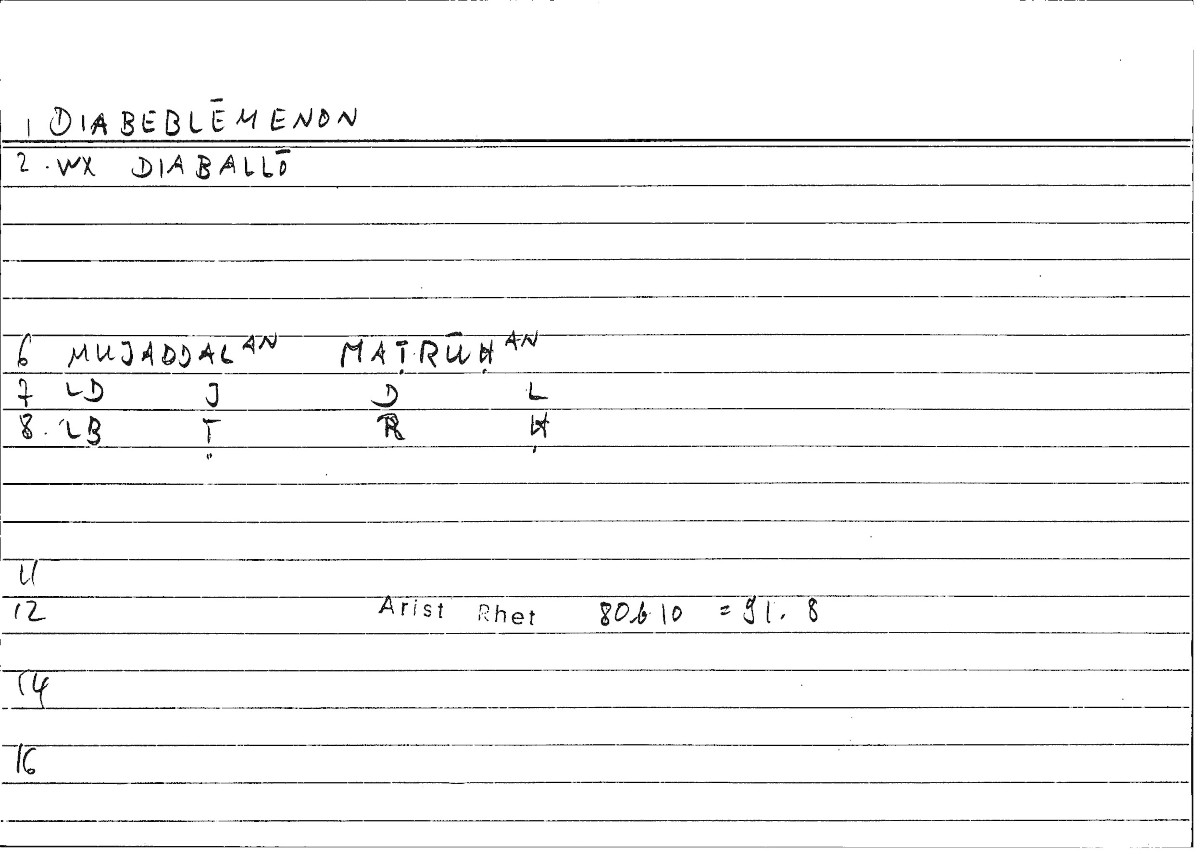 1 DIABEBLĒMENON
2. WX DIABALLŌ
6 MUJADDALAN MAṬRŪḤAN
7 LD J D L
8. LB Ṭ R Ḥ
11
12 Arist Rhet 80b10 = 91. 8
14
16